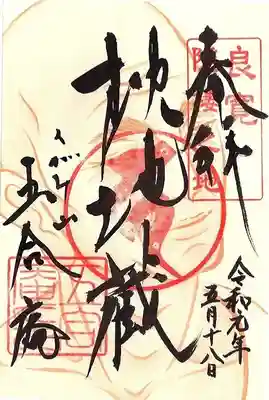 奉拝
良寛
隠棲之地
地蔵
くがみ山
五合庵
令和元年
五月十八日